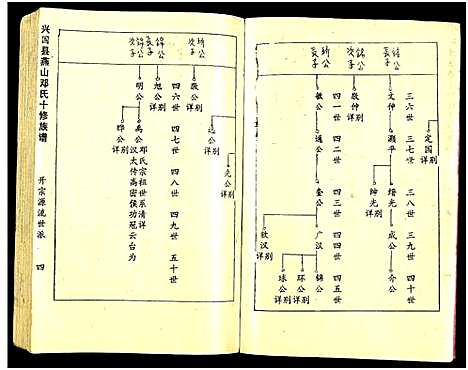 长子 绪公
次子 锦公
长子 圻公
三六世 三七世 三八世 三九世 四十世
定国 详别
文仲 灏平 缙光 成公 介公
绅光 详别
敬仲 详别
四一世 四二世 四三世 四四世 四五世
敏公 通公 奎公 广汉 锦公
环公 详别
球公 详别
钦汉 详别
次子 圻公
长子 锦公
次子 锦公
远公 详别
光公 详别
敬公 详别
四六世 四七世 四八世 四九世 五十世
旭公 详别
明公 禹公
邓氏宗祖世系清详
汉太传高密侯功冠云台为
晔公 详别
兴国县燕山邓氏十修族谱
开宗源流世派
四